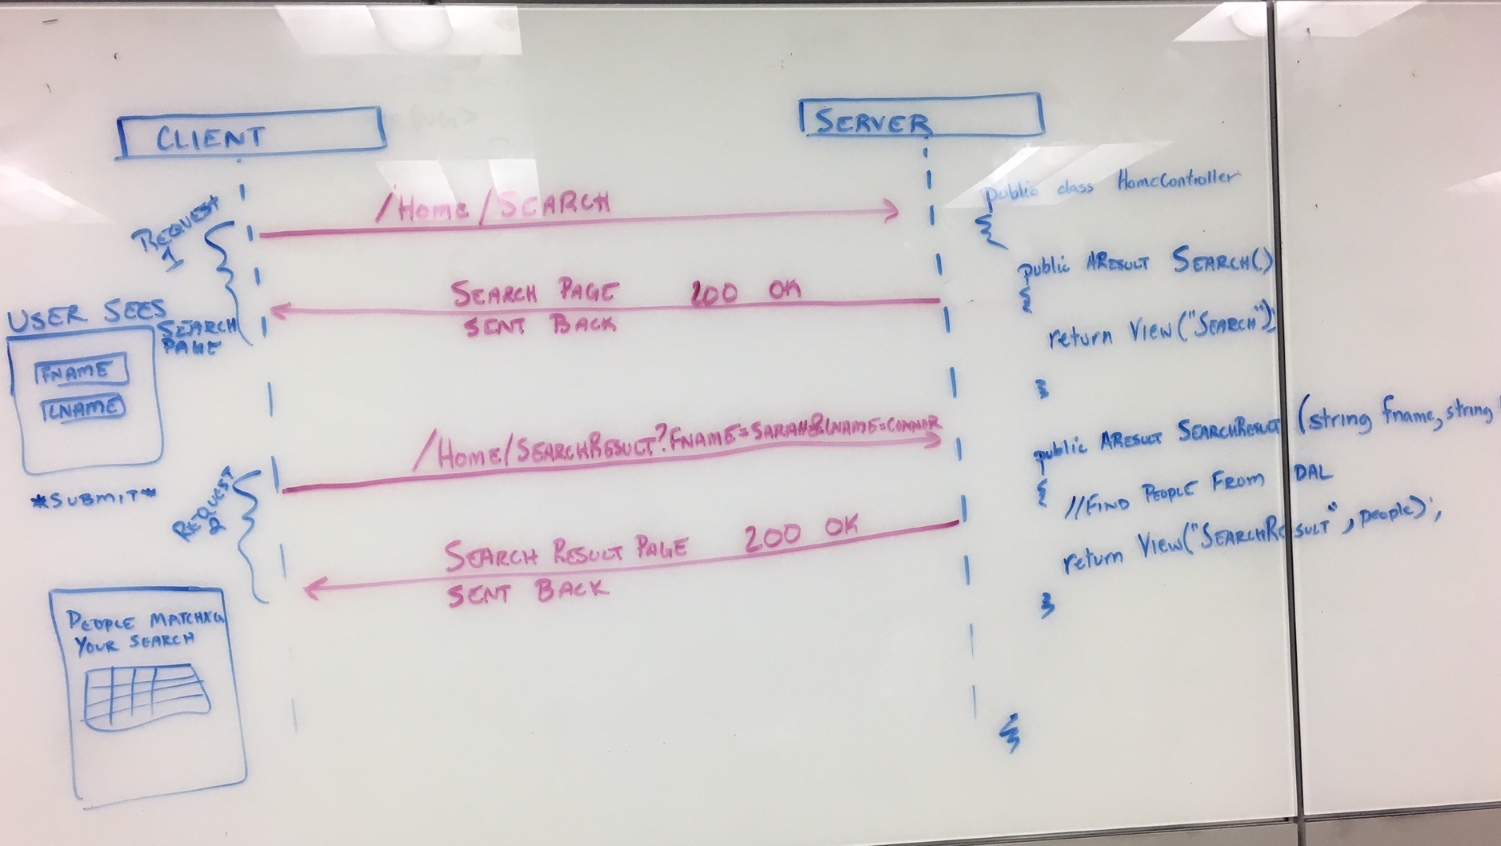 CLIENT
SERVER
REQUEST
1
/HOME/SEARCH
SEARCH PAGE 200 OK
SENT BACK
USER SEES
SEARCH
PAGE
FNAME
LNAME
*SUBMIT*
REQUEST
2
/HOME/SEARCHRESULT?FNAME=SARAH&LNAME=CONNOR
SEARCH RESULT PAGE 200 OK
SENT BACK
PEOPLE MATCHING
YOUR SEARCH
public class HomeController
{
public ARESULT SEARCH()
{
return VIEW("SEARCH");
}
public ARESULT SEARCHRESULT (string fname, string
{
//FIND PEOPLE FROM DAL
return VIEW("SEARCHRESULT", people);
}
}